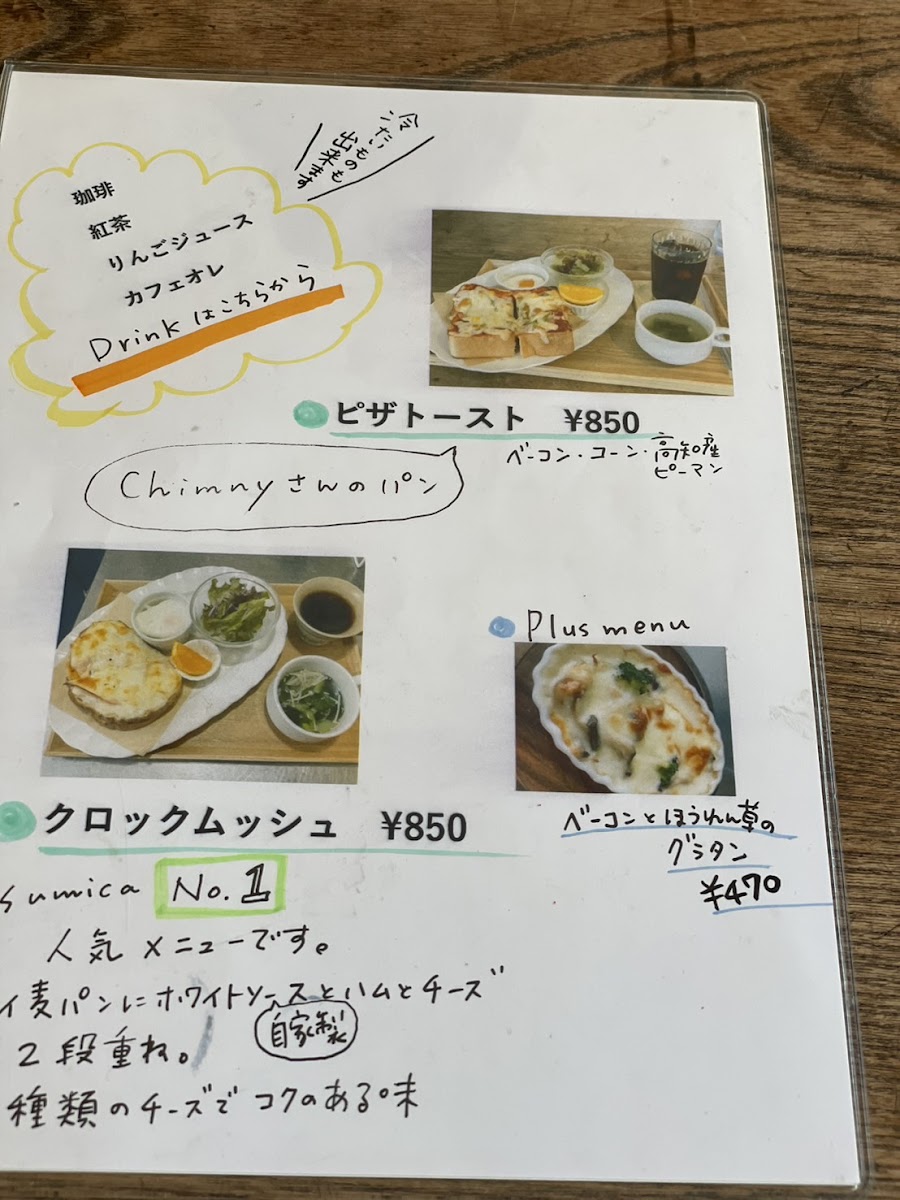 冷
たい
ものも
出来ます
珈琲
紅茶
りんごジュース
カフェオレ
Drinkはこちらから
ピザトースト ¥850
ベーコン・コーン・高知産
ピーマン
Chimnyさんのパン
Plus menu
ベーコンとほうれん草の
グラタン
¥470
クロックムッシュ ¥850
sumica No.1
人気メニューです。
イ麦パンにホワイトソースとハムとチーズ
自家製
2段重ね。
種類のチーズでコクのある味